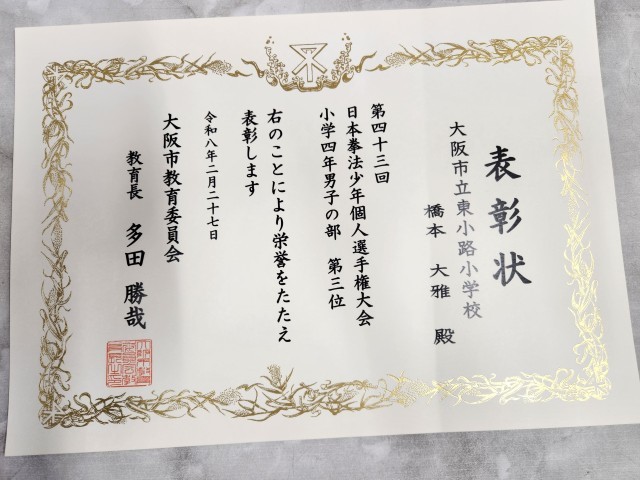 表彰状
大阪市立東小路小学校
橋本 大雅 殿
第四十三回
日本拳法少年個人選手権大会
小学四年男子の部 第三位
右のことにより栄誉をたたえ
表彰します
令和八年二月二十七日
大阪市教育委員会
教育長 多田 勝哉